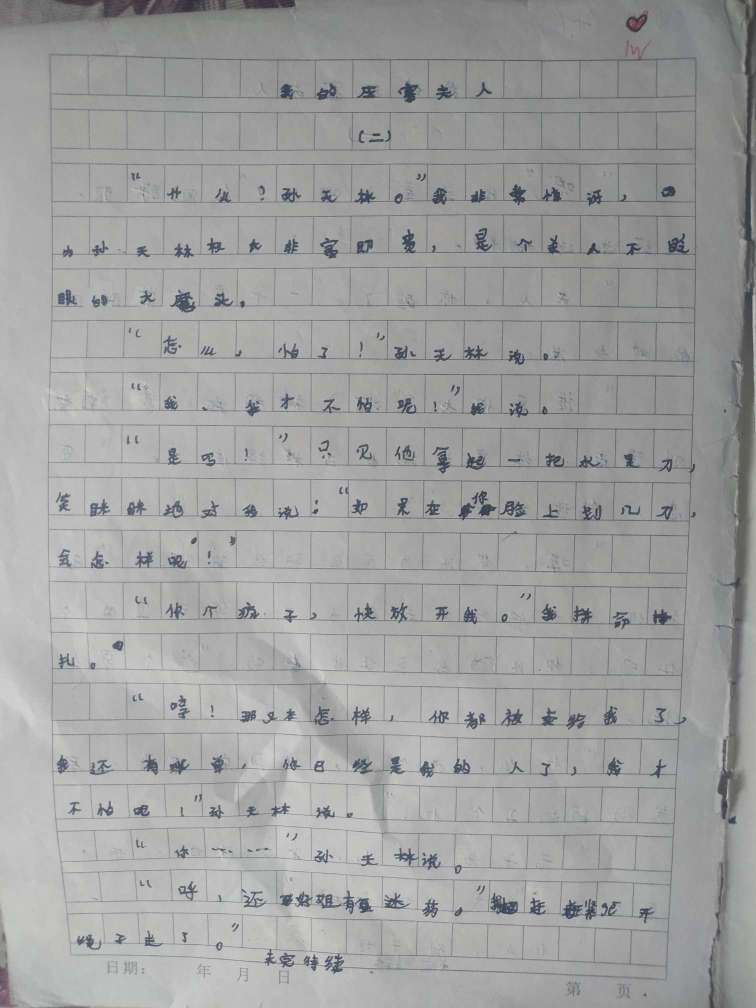 我的压寨夫人
（二）
“什么！孙天林。”我非常惊讶，因
为孙天林权大非富即贵，是个美人不眨
眼的大魔头。
“怎么，怕了！”孙天林说。
“我、我才不怕呢！”我说。
“是吗！”只见他拿起一把水果刀，
笑眯眯地对我说：“如果在你脸上划几刀，
会怎样呢！”
“你个疯子，快放开我。”我拼命挣
扎。
“哼！那又怎样，你都被卖给我了，
我还有，你已经是我的人了，我才
不怕呢！”孙天林说。
“你……”孙天林说。
“呼，还好姐有迷药。”赶紧把开
绳子走了。”
未完待续
日期： 年 月 日
第 页